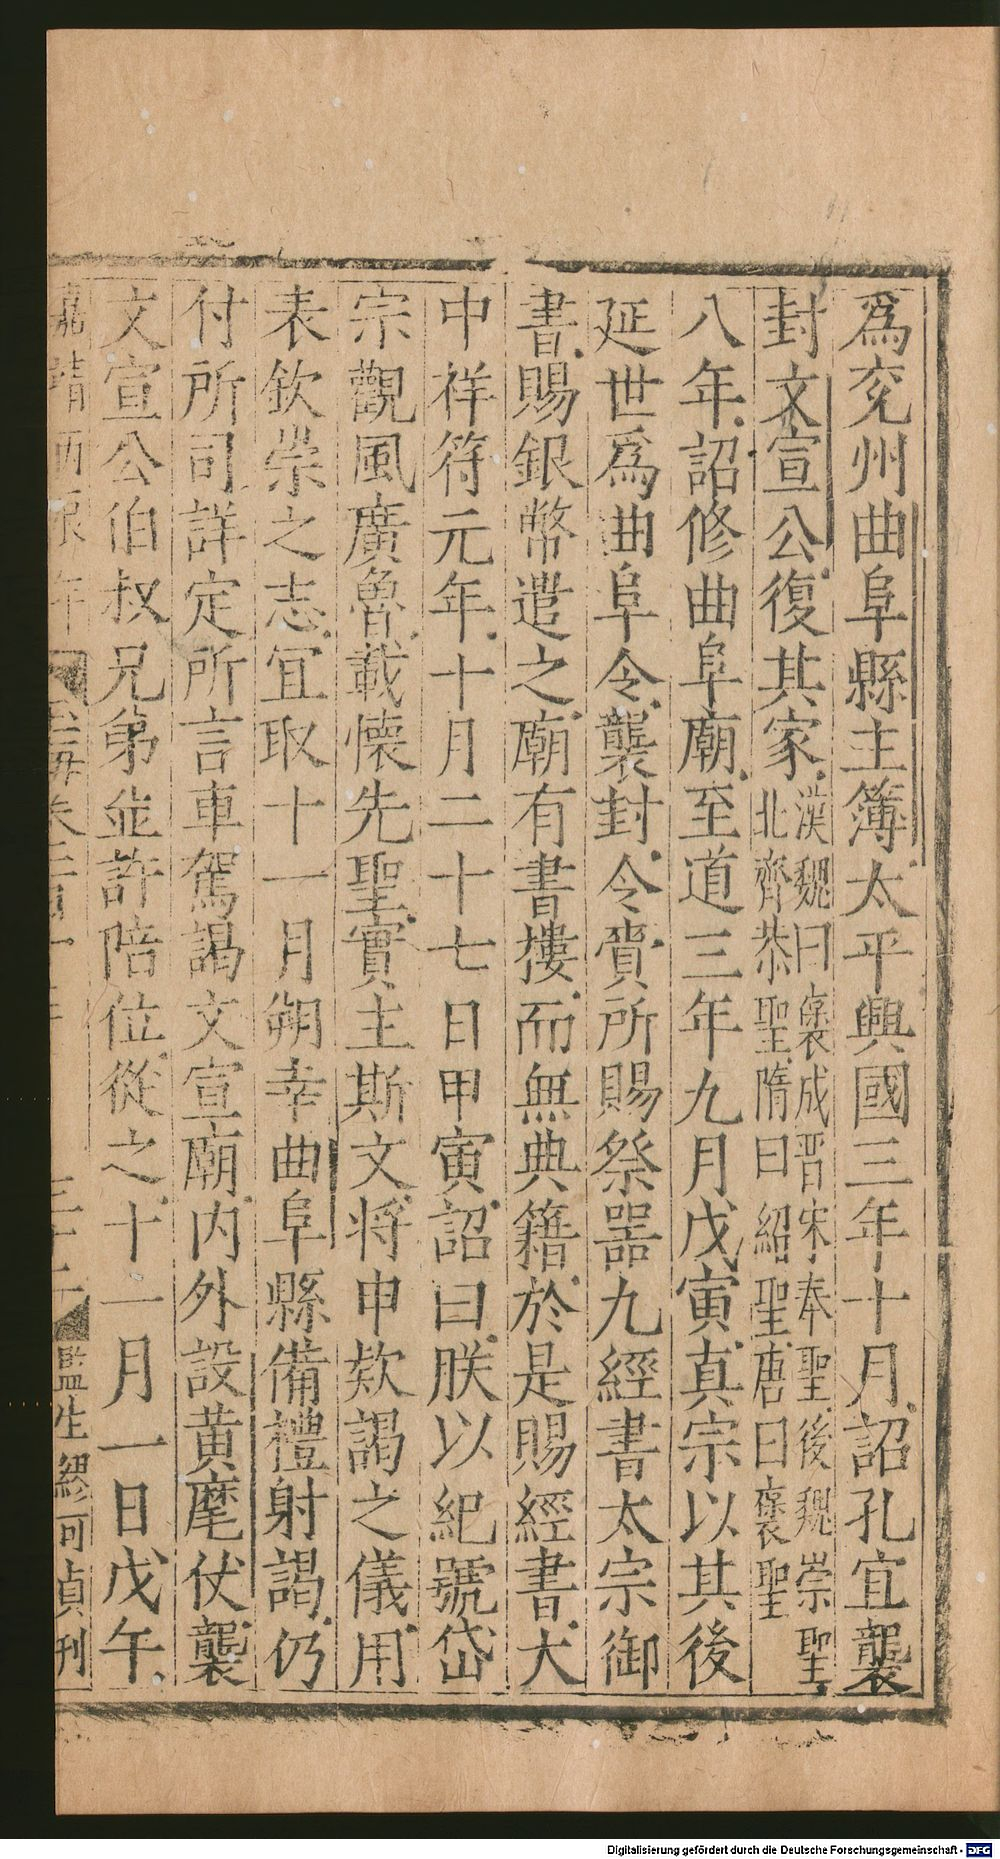 爲兖州曲阜縣主簿太平興國三年十月詔孔宜襲
封文宣公復其家漢魏曰襃成晋宋奉聖後魏崇聖
北齊恭聖隋曰紹聖唐曰襃聖
八年詔修曲阜廟至道三年九月戊寅真宗以其後
延世爲曲阜令襲封令賷所賜祭噐九經書太宗御
書賜銀幣遣之廟有書摟而無典籍於是賜經書大
中祥符元年十月二十七日甲寅詔曰朕以紀號岱
宗觀風廣魯載懐先聖實主斯文将申欵謁之儀用
表欽崇之志宜取十一月朔幸曲阜縣備禮射謁仍
付所司詳定所言車駕謁文宣廟内外設黄麾仗襲
文宣公伯叔兄弟並許陪位從之十一月一日戊午
嘉靖丙辰年 玉海卷 三十二 監生繆可貞刋
Digitalisierung gefördert durch die Deutsche Forschungsgemeinschaft - DFG